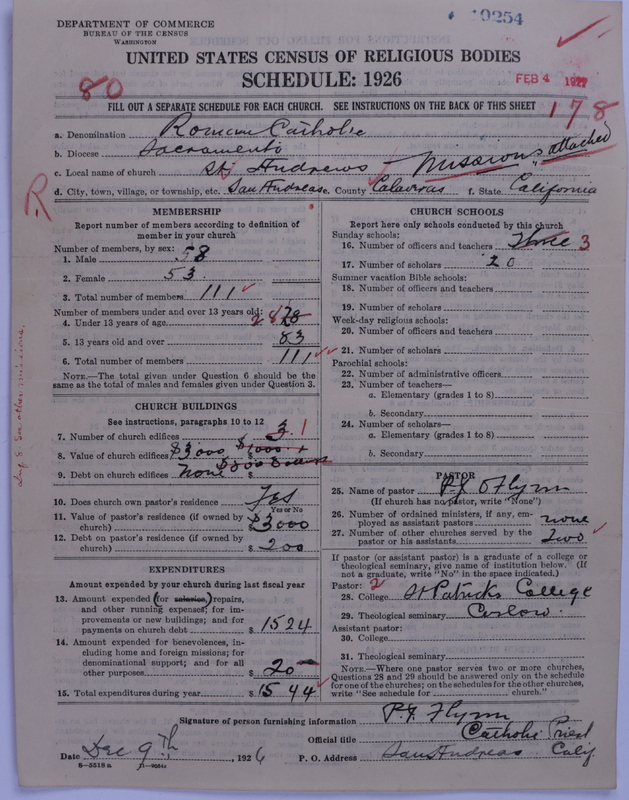 DEPARTMENT OF COMMERCE
BUREAU OF THE CENSUS
WASHINGTON
10254
UNITED STATES CENSUS OF RELIGIOUS BODIES
SCHEDULE: 1926
80
FEB 4 1927
FILL OUT A SEPARATE SCHEDULE FOR EACH CHURCH. SEE INSTRUCTIONS ON THE BACK OF THIS SHEET
178
a. Denomination Roman Catholic
b. Diocese Sacramento
c. Local name of church St Andrews Missions attached
d. City, town, village, or township, etc. San Andreas e. County Calaveras f. State California
R
MEMBERSHIP
Report number of members according to definition of member in your church
Number of members, by sex:
1. Male 58
2. Female 53
3. Total number of members 111
Number of members under and over 13 years old:
4. Under 13 years of age 28
5. 13 years old and over 83
6. Total number of members 111
NOTE.—The total given under Question 6 should be
same as the total of males and females given under Question 3.
CHURCH BUILDINGS
See instructions, paragraphs 10 to 12
7. Number of church edifices 3 1
8. Value of church edifices $3000 $1000
9. Debt on church edifices none $
10. Does church own pastor's residence Yes
Yes or No
11. Value of pastor's residence (if owned by
church) $3000
12. Debt on pastor's residence (if owned by
church) $200
EXPENDITURES
Amount expended by your church during last fiscal year
13. Amount expended (for salaries,) repairs,
and other running expenses; for im-
provements or new buildings; and for
payments on church debt $1524
14. Amount expended for benevolences, in-
cluding home and foreign missions; for
denominational support; and for all
other purposes $20
15. Total expenditures during year $1544
CHURCH SCHOOLS
Report here only schools conducted by this church
Sunday schools:
16. Number of officers and teachers Three 3
17. Number of scholars 20
Summer vacation Bible schools:
18. Number of officers and teachers
19. Number of scholars
Week-day religious schools:
20. Number of officers and teachers
21. Number of scholars
Parochial schools:
22. Number of administrative officers
23. Number of teachers—
a. Elementary (grades 1 to 8)
b. Secondary
24. Number of scholars—
a. Elementary (grades 1 to 8)
b. Secondary
PASTOR
25. Name of pastor P.J. O'Flynn
(If church has no pastor, write "None")
26. Number of ordained ministers, if any, em-
ployed as assistant pastors none
27. Number of other churches served by the
pastor or his assistants Two
If pastor (or assistant pastor) is a graduate of a college or
theological seminary, give name of institution below. (If
not a graduate, write "No" in the space indicated.)
Pastor: 2
28. College St Patricks College
29. Theological seminary Carlow
Assistant pastor:
30. College
31. Theological seminary
NOTE.—Where one pastor serves two or more churches,
Questions 28 and 29 should be answered only on the schedule
for one of the churches; on the schedules for the other churches,
write "See schedule for church."
Signature of person furnishing information P.J. Flynn
Official title Catholic Priest
Date Dec 9th, 1926 P. O. Address San Andreas Calif
8—5518 a